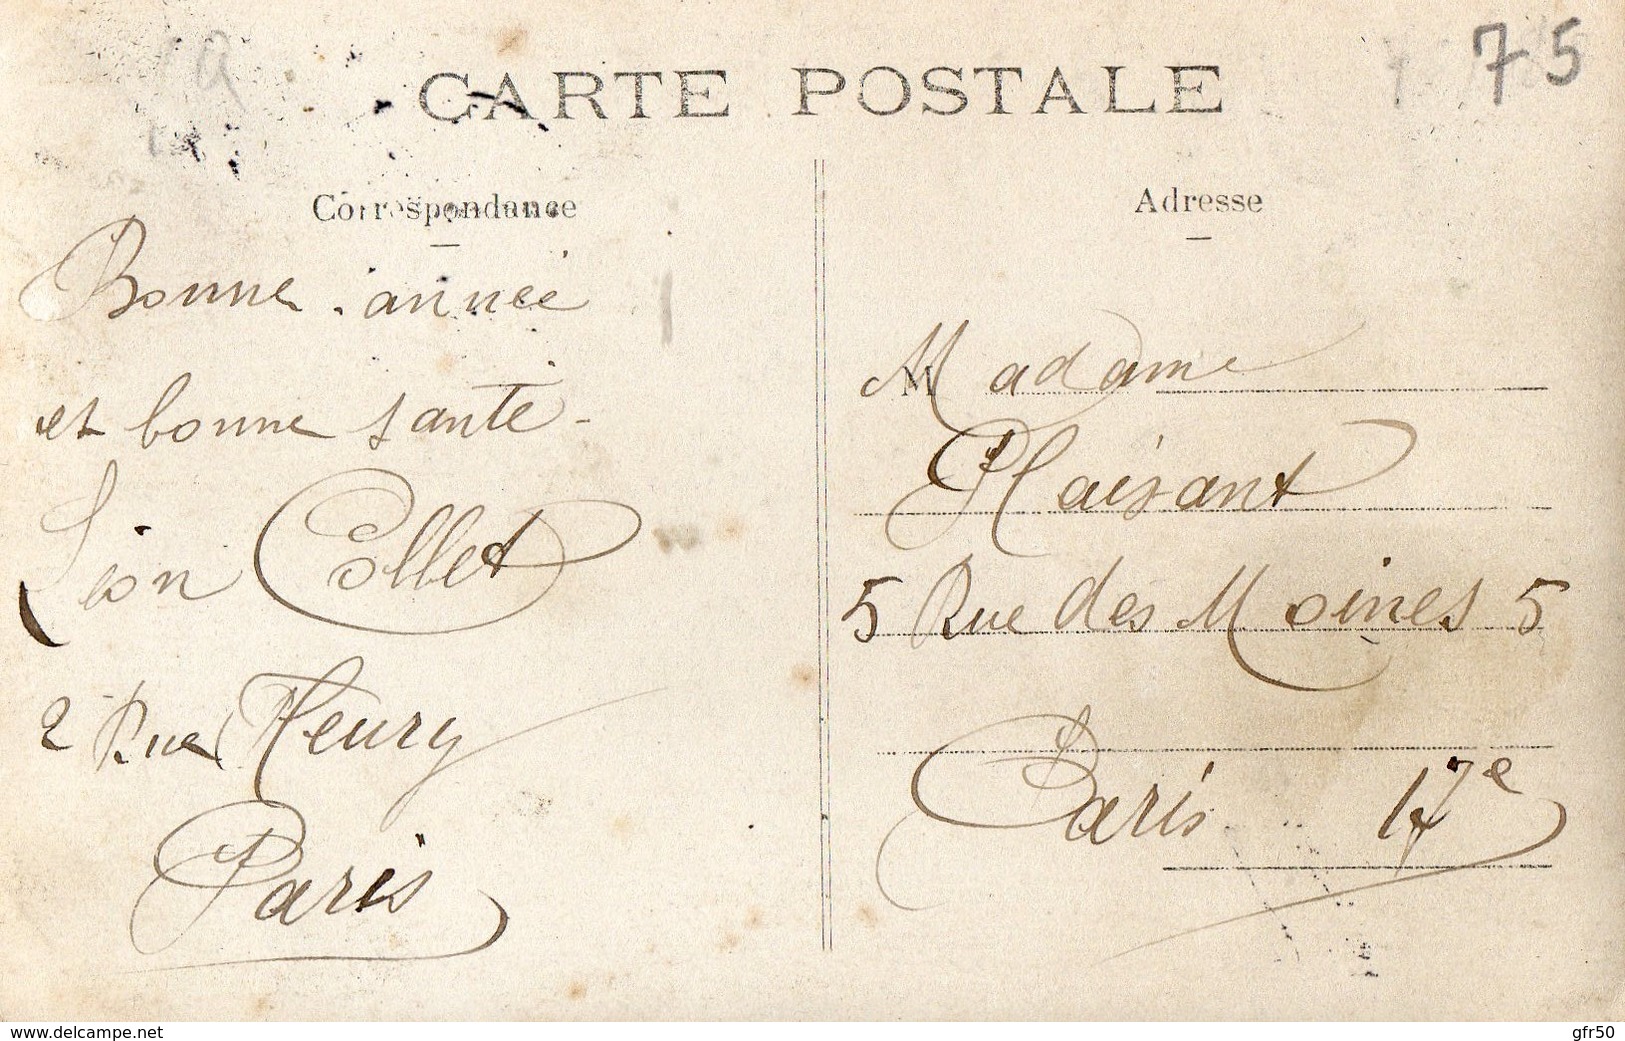 CARTE POSTALE
75
Correspondance
Bonne année
et bonne santé
Léon Collet
2 Rue Fleury
Paris
Adresse
M
Madame
Plaisant
5 Rue des Moines 5
Paris 17e
www.delcampe.net
gfr50